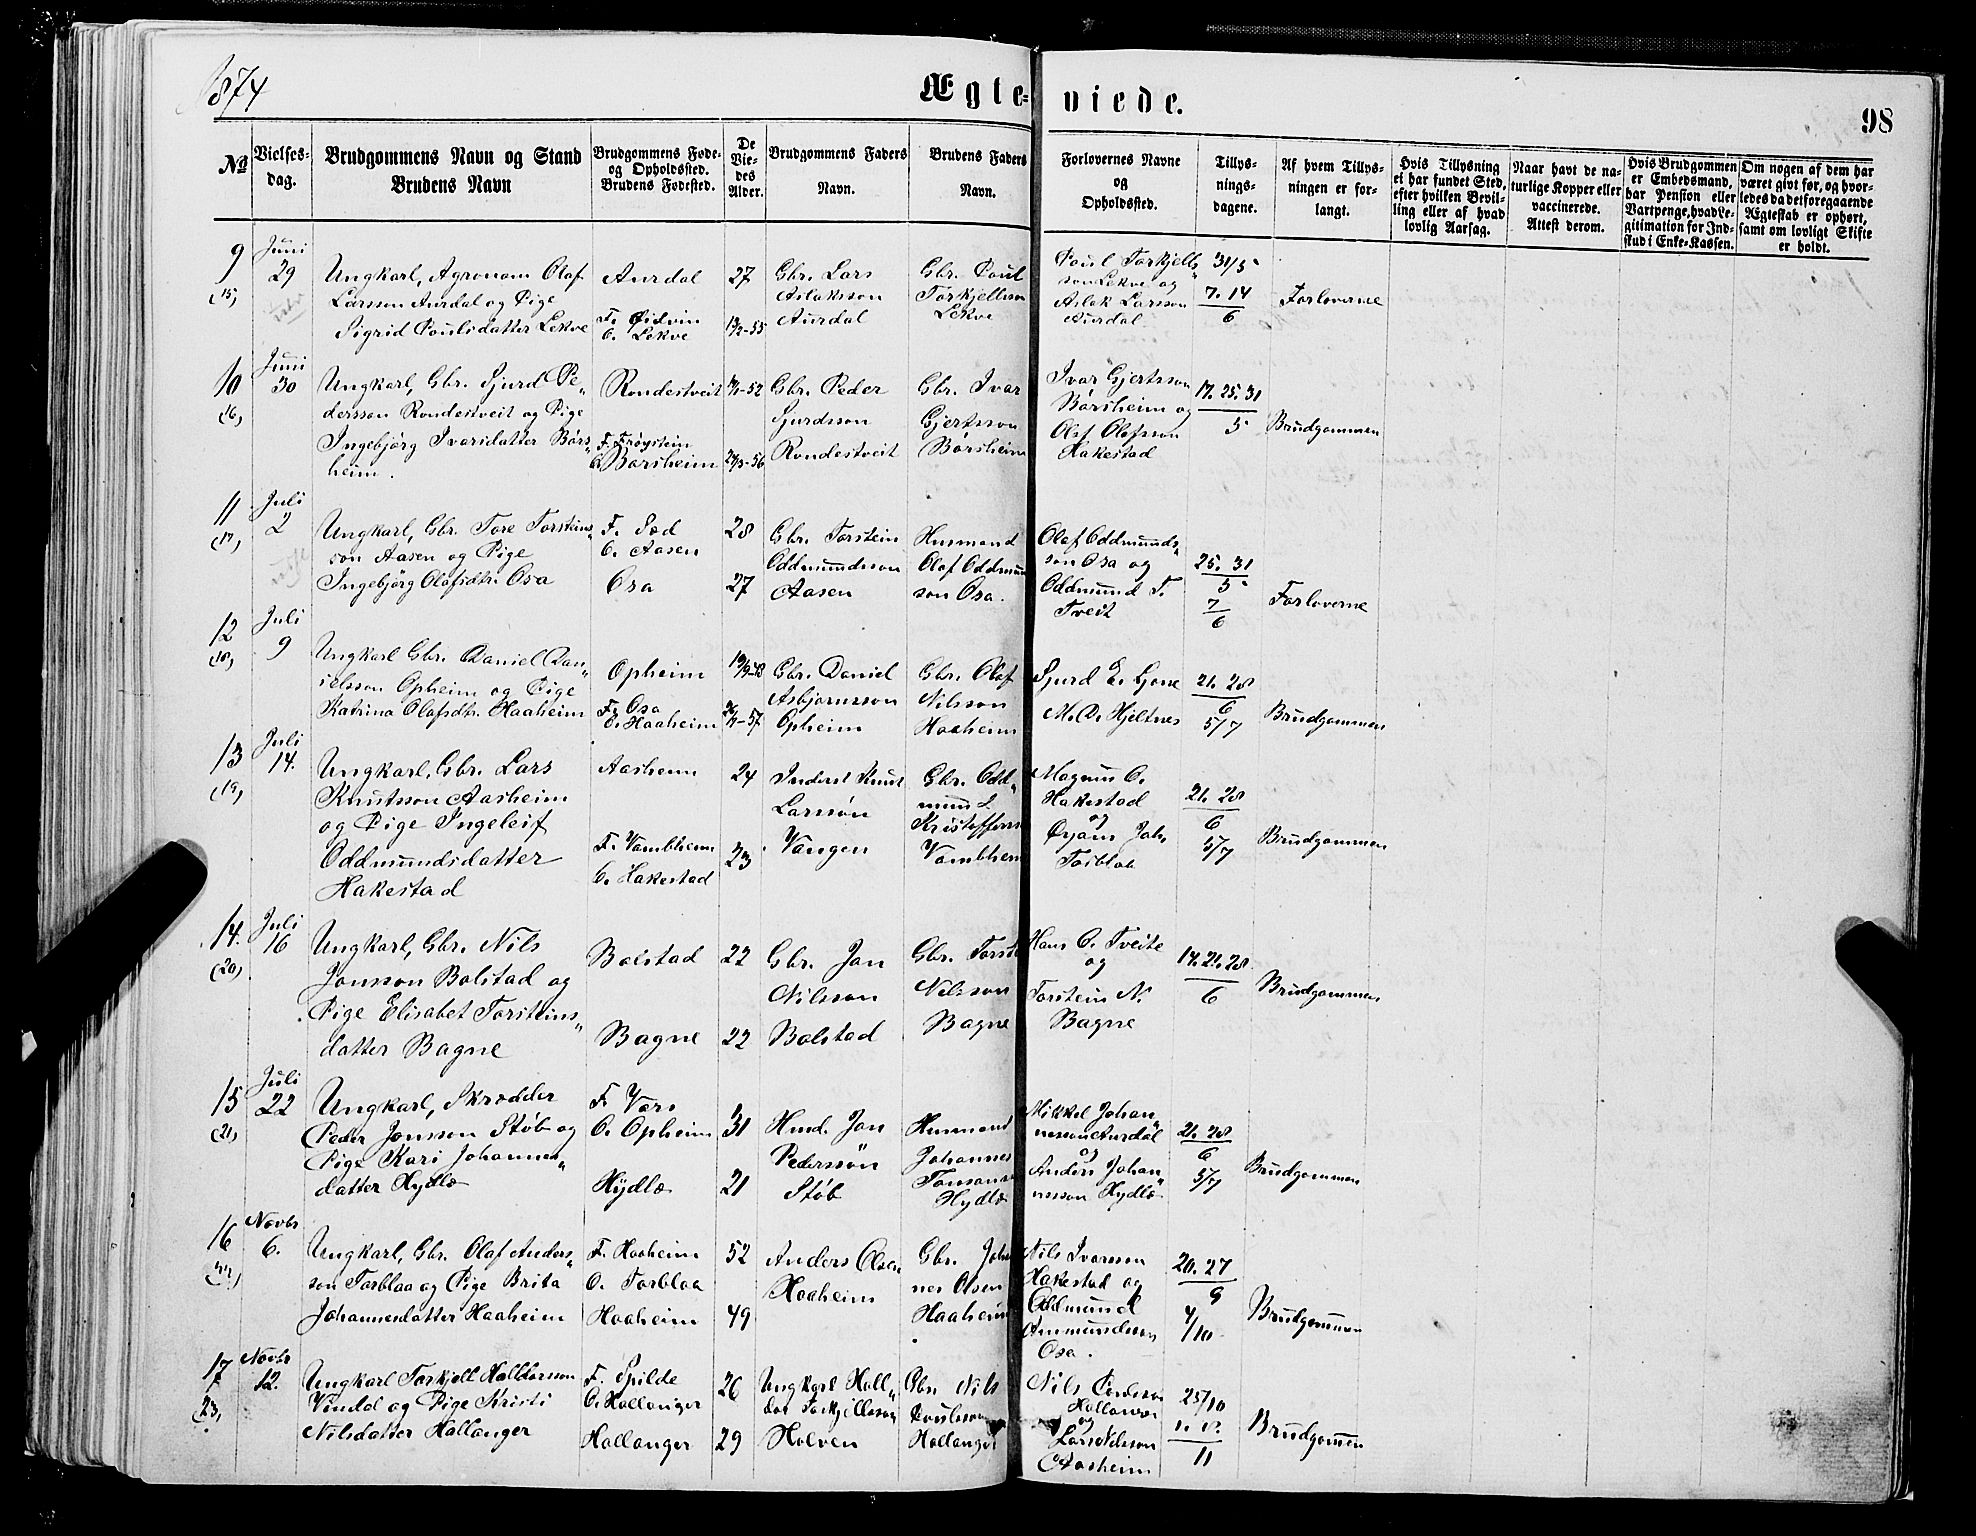 1874
Ægte-viede.
98
No
Vielses-dag.
Brudgommens Navn og Stand
Brudens Navn
Brudgommens Føde- og Opholdssted.
Brudens Fødested.
De Viedes Alder.
Brudgommens Faders Navn.
Brudens Faders Navn.
Forlovernes Navne og Opholdssted.
Tillysningsdagene.
Af hvem Tillysningen er forlangt.
Hvis Tillysning ei har fundet Sted, efter hvilken Bevilling eller af hvad lovlig Aarsag.
Naar havt de naturlige Kopper eller vaccinerede. Attest derom.
Hvis Brudgommen er Embedsmand, har Pension eller Vartpenge, hvad Legitimation for Indskud i Enke-Kassen.
Om nogen af dem har været givt før, og hvorledes da det foregaaende Ægteskab er ophørt, samt om lovligt Skifte er holdt.
9
(15)
Juni
29
Ungkarl, Agronom Olaf
Larsson Aurdal og Pige
Sigrid Poulsdatter Lekve
Aurdal
F. Eidvin
O. Lekve
27
Gbr. Lars
Aslaksson
Aurdal
Gbr. Poul
Torkjellsson
Lekve
Poul Torkjells„
son Lekve og
Aslak Larsson
Aurdal
31/5
7. 14
6
Forloverne
10
(16)
Juni
30
Ungkarl, Gbr. Sjurd Pe„
dersson Rondestveit og Pige
Ingebjörg Ivarsdatter Börs„
heim.
Rondestveit
F. Fröystein
O. Börsheim
Gbr. Peder
Sjurdsson
Rondestveit
Gbr. Ivar
Gjertsson
Börsheim
Ivar Gjertsson
Börsheim og
Olaf Olafsson
Hakestad
17. 25. 31
5
Brudgommen
11
(17)
Juli
2
Ungkarl, Gbr. Tore Torsteins„
son Aasen og Pige
Ingebjörg Olafsdtr. Osa
F. Sæd
O. Aasen
Osa
28
27
Gbr. Torstein
Oddmundsson
Aasen
Husmand
Olaf Oddmun
son Osa.
Olaf Oddmunds„
son Osa og
Oddmund T.
Tveit
25. 31
5
7
6
Forloverne
12
(18)
Juli
9
Ungkarl Gbr. Daniel Dan„
ielsson Opheim og Pige
Katrina Olafsdtr. Haaheim
Opheim
F. Osa
O. Haaheim
Gbr. Daniel
Asbjørnsson
Opheim
Gbr. Olaf
Nilsson
Haaheim
Sjurd E. Ljone
M. D. Hjeltnes
21. 28
6
5/7
Brudgommen
13
(19)
Juli
14.
Ungkarl, Gbr. Lars
Knutsson Aasheim
og Pige Ingeleif
Oddmundsdatter
Hakestad
Aasheim
F. Vambheim
O. Hakestad
24
23
Inderst Knut
Larssön
Vangen
Gbr. Odd„
mund
Kristoffers
Vambheim
Magnus O.
Hakestad
og
Johs
Torblaa
21. 28
6
5/7
Brudgommen
14.
(20)
Juli
16
Ungkarl, Gbr. Nils
Jonsson Bolstad og
Pige Elisabet Torsteins„
datter Bagne
Bolstad
Bagne
22
22
Gbr. Jon
Nilsson
Bolstad
Gbr. Torst
Nilsson
Bagne
Hans O. Tveite
og
Torstein N.
Bagne
14. 21. 28
6
Brudgommen
15
(21)
Juli
22
Ungkarl, Skrædder
Peder Jonsson Støb og
Pige Kari Johannes„
datter Hydle
F. Vors
O. Opheim
Hydle
31
21
Husd. Jon
Pederssön
Støb
Husmand
Johannes
Hydle
Mikkel Johan„
nesson Aurdal
og
Anders Johan„
nesson Hydle
21. 28
6
5/7
Brudgommen
16
(22)
Novbr
6.
Ungkarl, Gbr. Olaf Anders„
son Torblaa og Pige Brita
Johannesdatter Haaheim
F. Haaheim
O. Torblaa
Haaheim
52
49
Anders Olsen
Haaheim
Gbr. Johan
nes Olsen
Haaheim
Nils Ivarsson
Hakestad og
Oddmund
Ammundsson
Osa.
20. 27
9
4/10
Brudgommen
17
23,
Novbr
12.
Ungkarl Torkjell Halldorsson
Vindal og Pige Kristi
Nilsdatter Hallanger
F. Spilde
O. Hallanger
Hallanger
26
29
Ungkarl Hall„
dor Torkjellsson
Holven
Gbr. Nils
Poulsson
Hallanger
Nils
Hallanger
og
Lars Nilsson
Aasheim
25/10
1. 8.
11
Brudgommen